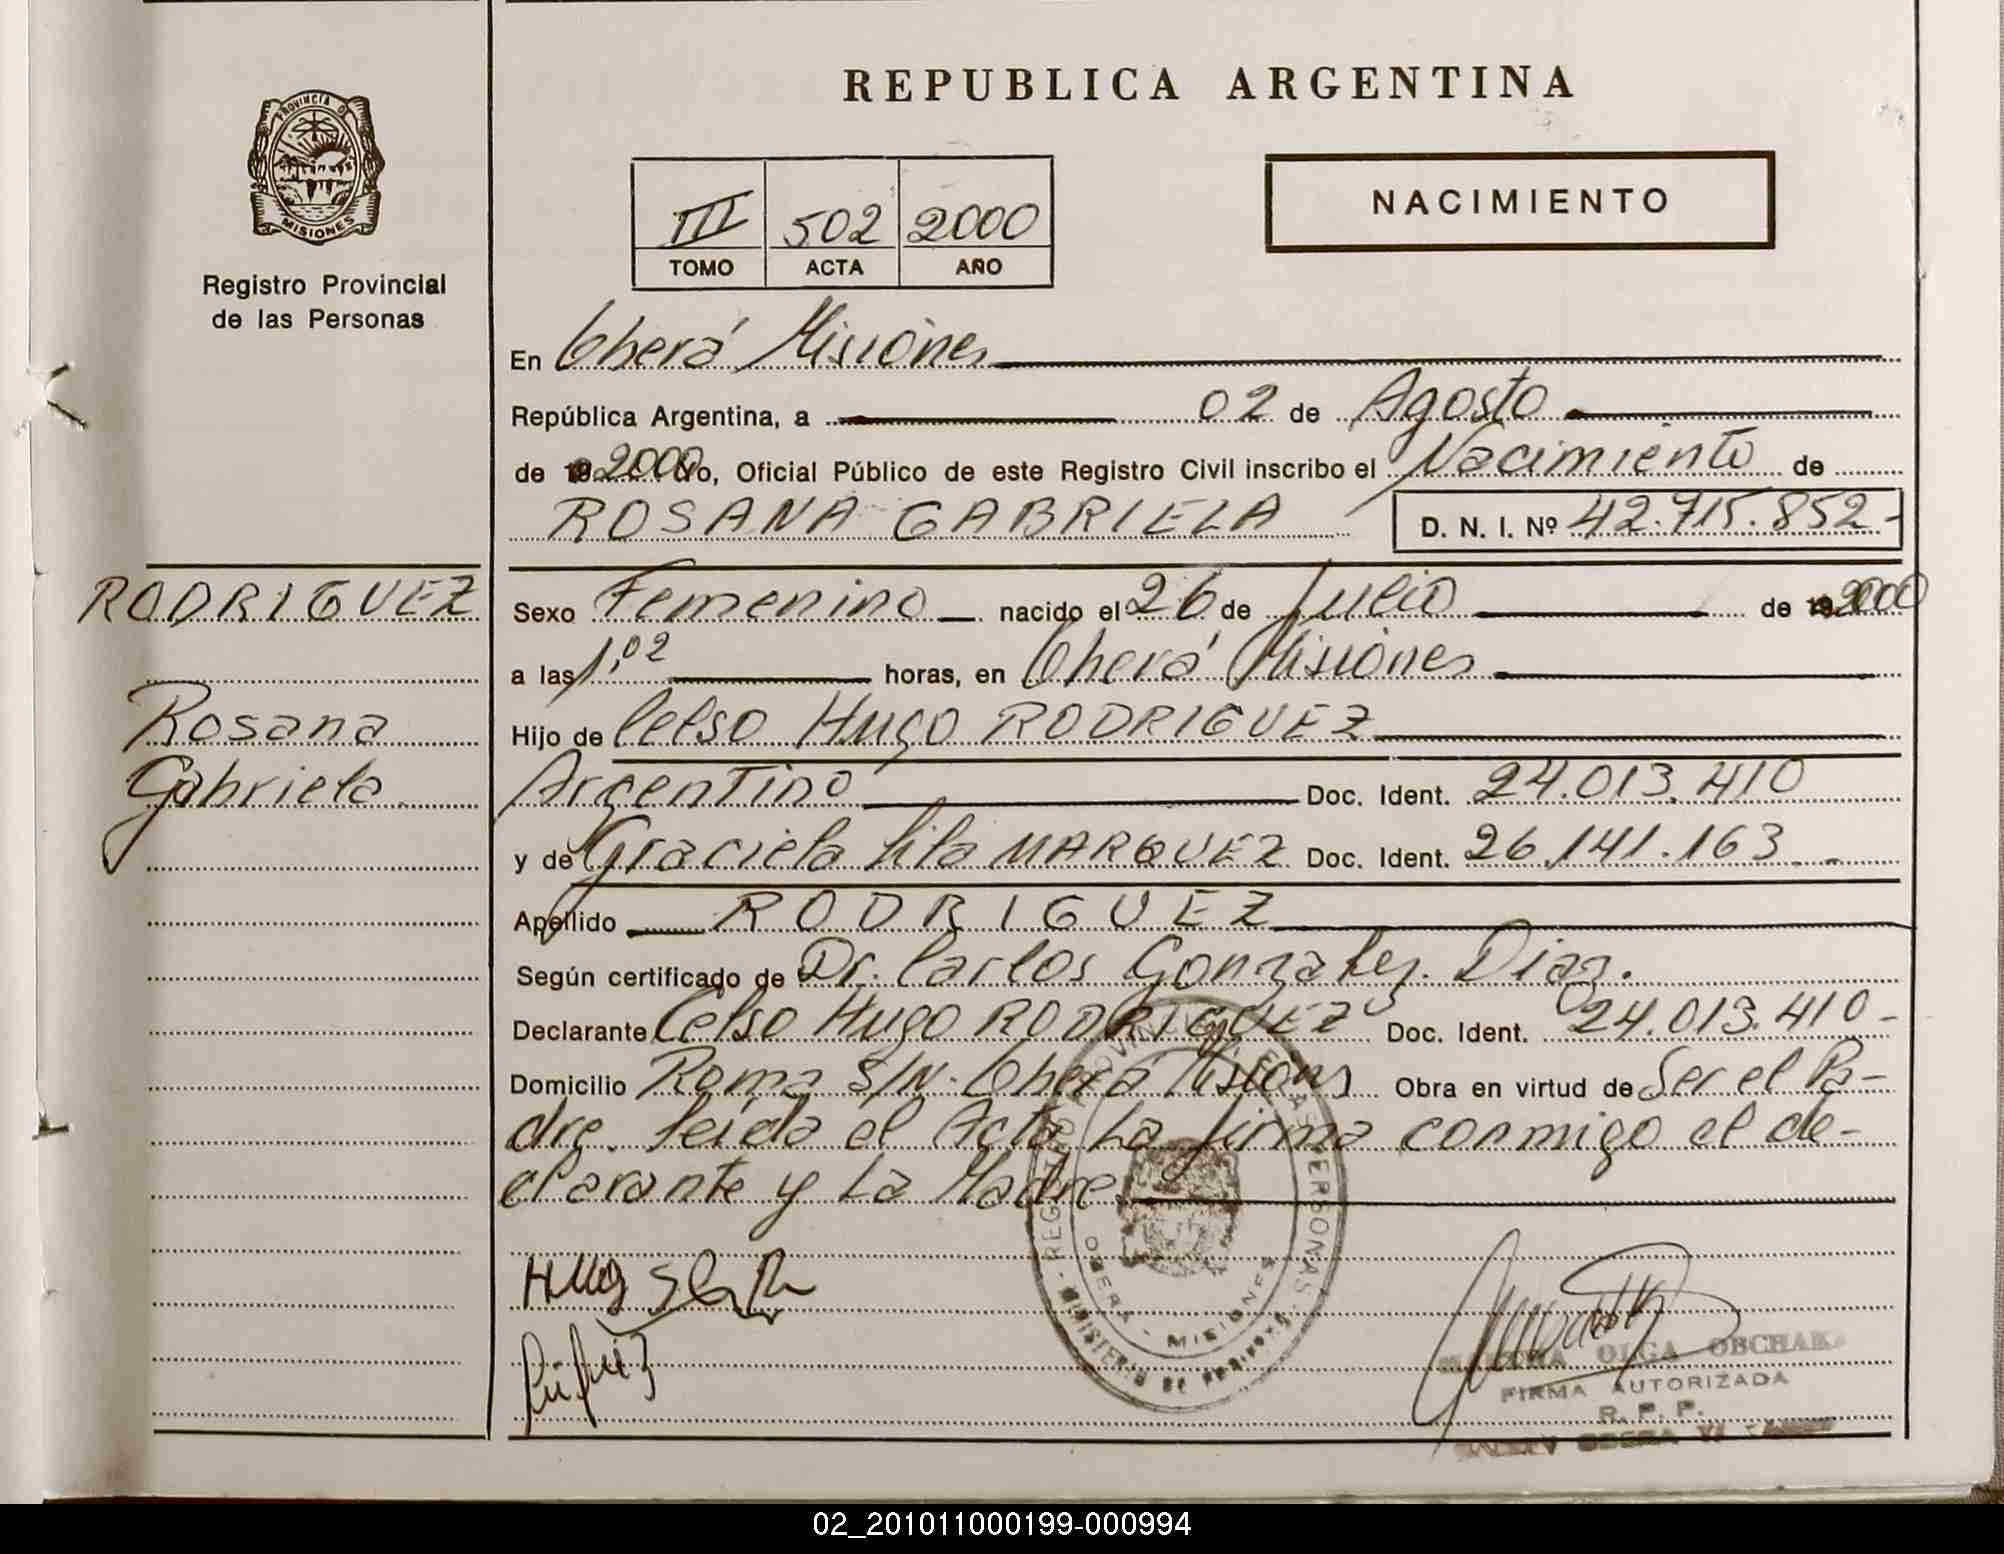 REPUBLICA ARGENTINA
PROVINCIA DE
MISIONES
Registro Provincial
de las Personas
III 502 2000
TOMO ACTA AÑO
NACIMIENTO
En Oberá Misiones
República Argentina, a 02 de Agosto
de 19 2000 Yo, Oficial Público de este Registro Civil inscribo el Nacimiento de
ROSANA GABRIELA D. N. I. Nº 42.715.852-
RODRIGUEZ
Rosana
Gabriela
Sexo Femenino nacido el 26 de Julio de 19 2000
a las 1,02 horas, en Oberá Misiones
Hijo de Celso Hugo RODRIGUEZ
Argentino Doc. Ident. 24.013.410
y de Graciela Lila MARQUEZ Doc. Ident. 26.141.163
Apellido RODRIGUEZ
Según certificado de Dr. Carlos Gonzalez Diaz.
Declarante Celso Hugo RODRIGUEZ Doc. Ident. 24.013.410-
Domicilio Roma S/N. Oberá Misiones Obra en virtud de Ser el Pa-
dre. Leída el Acta La firma conmigo el de-
clarante y La Madre
REGISTRO PROVINCIAL DE LAS PERSONAS
OBERA - MISIONES
MINISTERIO DE
OLGA OBCHAK
FIRMA AUTORIZADA
R. P. P.
OBERA
02_201011000199-000994